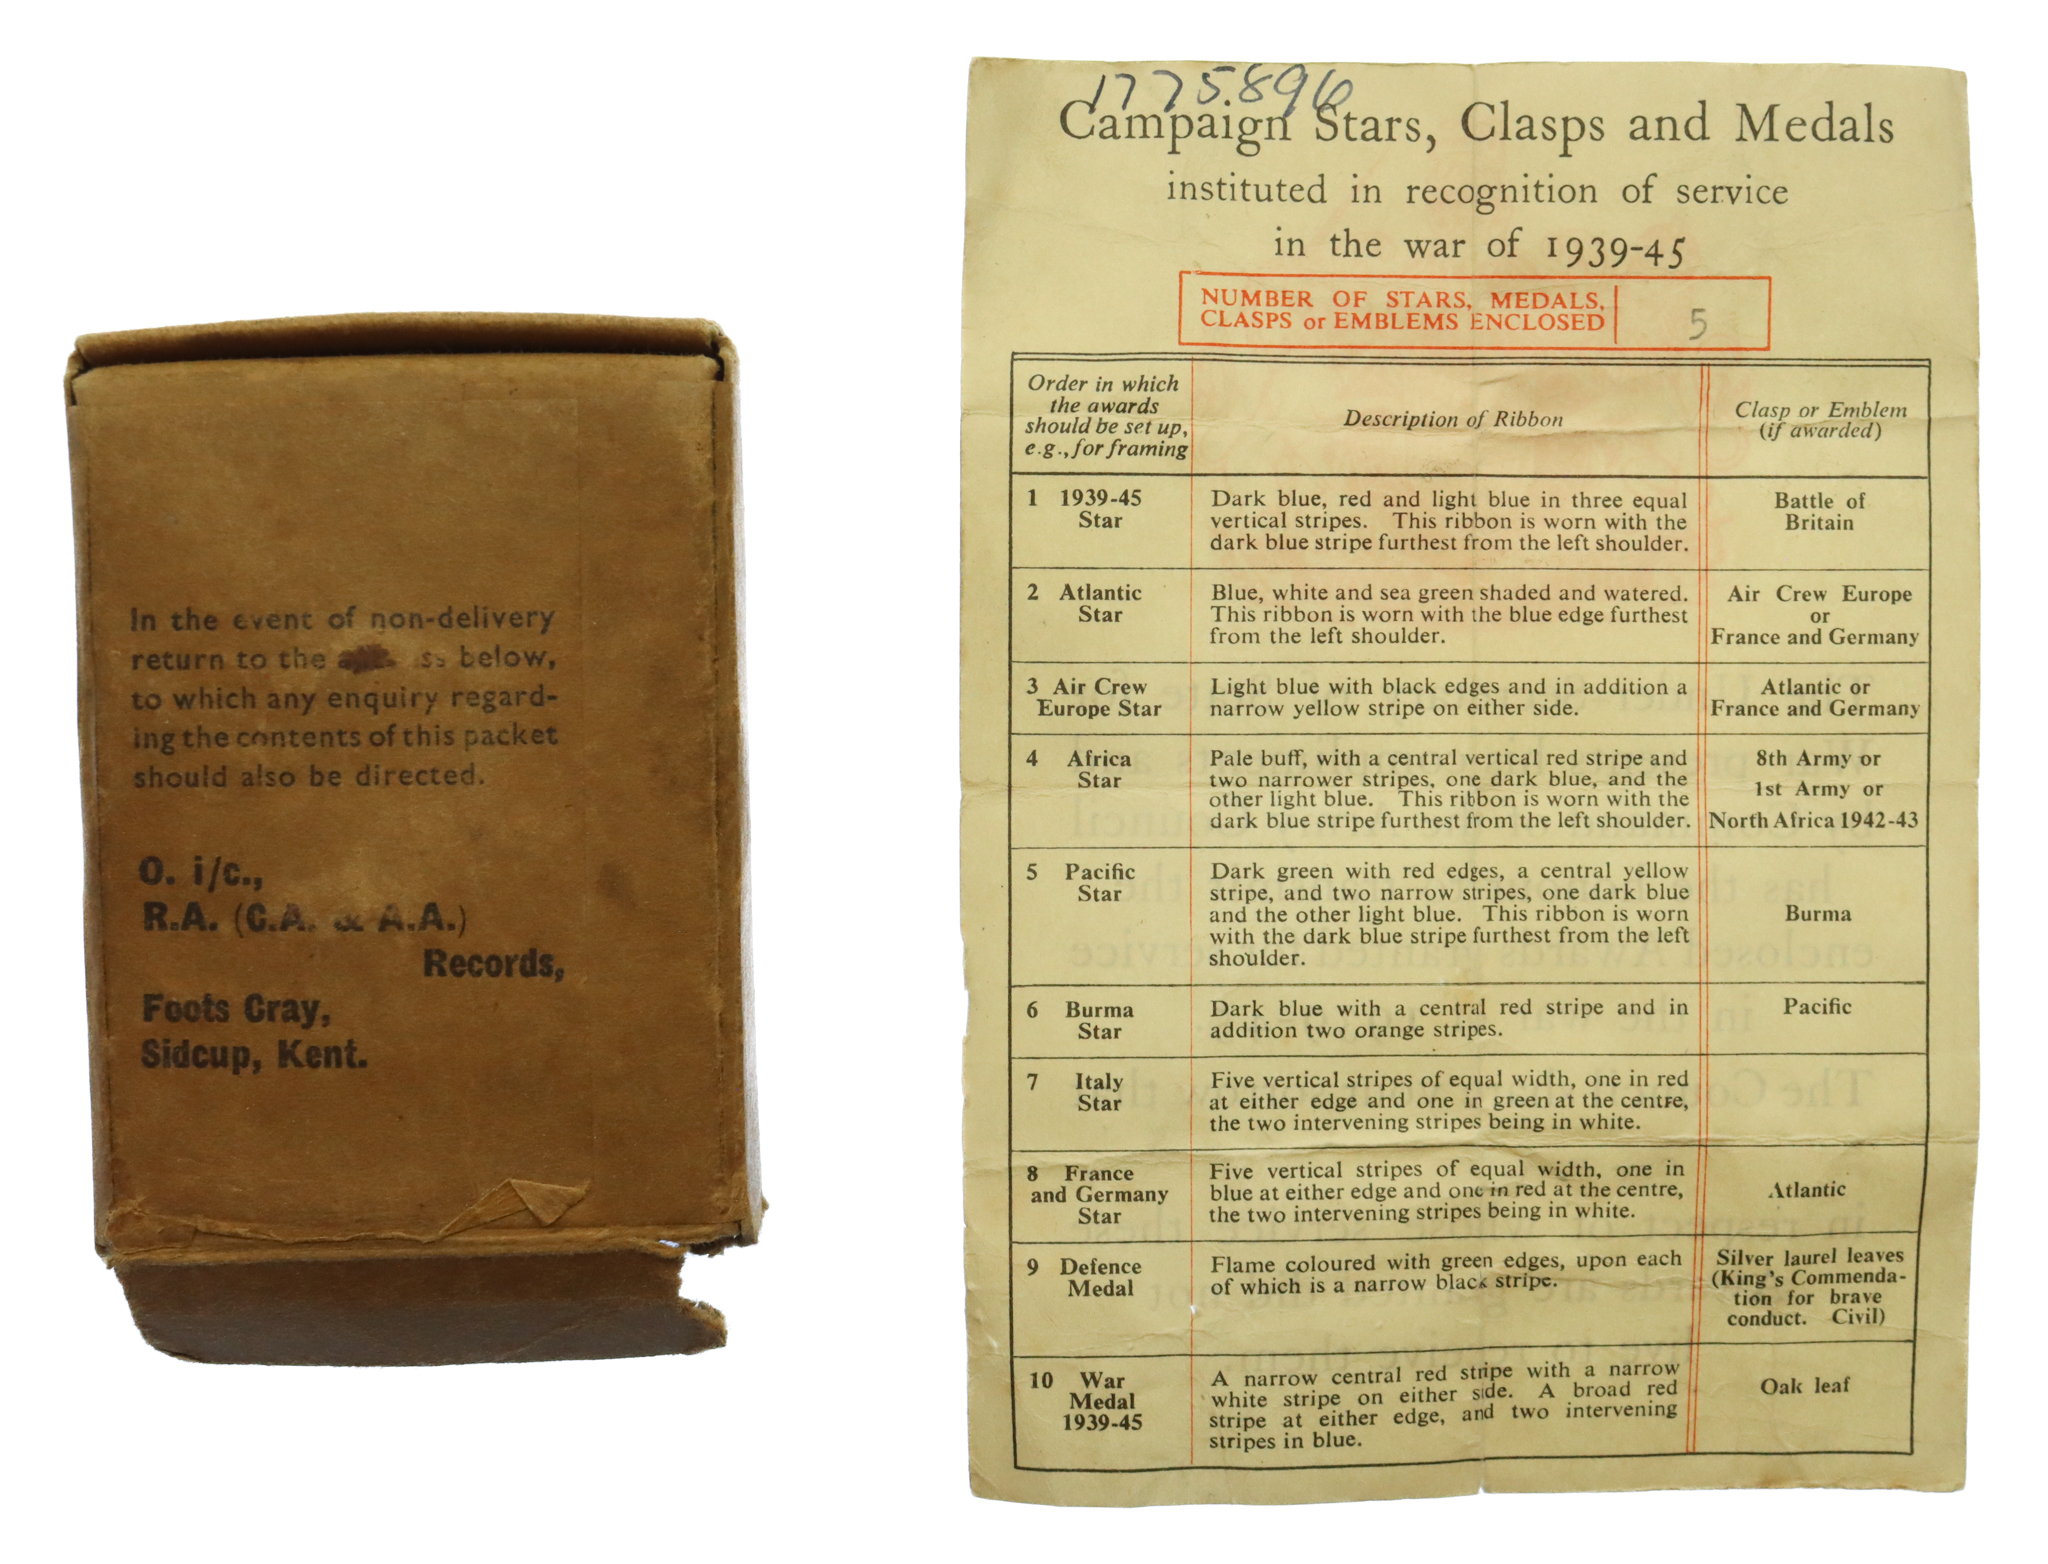 In the event of non-delivery
return to the below,
to which any enquiry regard-
ing the contents of this packet
should also be directed.
O. i/c.,
R.A. (C.A. & A.A.)
Records,
Foots Cray,
Sidcup, Kent.
1775896
Campaign Stars, Clasps and Medals
instituted in recognition of service
in the war of 1939-45
NUMBER OF STARS, MEDALS,
CLASPS or EMBLEMS ENCLOSED
5
Order in which
the awards
should be set up,
e.g., for framing
Description of Ribbon
Clasp or Emblem
(if awarded)
1 1939-45
Star
Dark blue, red and light blue in three equal
vertical stripes. This ribbon is worn with the
dark blue stripe furthest from the left shoulder.
Battle of
Britain
2 Atlantic
Star
Blue, white and sea green shaded and watered.
This ribbon is worn with the blue edge furthest
from the left shoulder.
Air Crew Europe
or
France and Germany
3 Air Crew
Europe Star
Light blue with black edges and in addition a
narrow yellow stripe on either side.
Atlantic or
France and Germany
4 Africa
Star
Pale buff, with a central vertical red stripe and
two narrower stripes, one dark blue, and the
other light blue. This ribbon is worn with the
dark blue stripe furthest from the left shoulder.
8th Army or
1st Army or
North Africa 1942-43
5 Pacific
Star
Dark green with red edges, a central yellow
stripe, and two narrow stripes, one dark blue
and the other light blue. This ribbon is worn
with the dark blue stripe furthest from the left
shoulder.
Burma
6 Burma
Star
Dark blue with a central red stripe and in
addition two orange stripes.
Pacific
7 Italy
Star
Five vertical stripes of equal width, one in red
at either edge and one in green at the centre,
the two intervening stripes being in white.
8 France
and Germany
Star
Five vertical stripes of equal width, one in
blue at either edge and one in red at the centre,
the two intervening stripes being in white.
Atlantic
9 Defence
Medal
Flame coloured with green edges, upon each
of which is a narrow black stripe.
Silver laurel leaves
(King's Commenda-
tion for brave
conduct. Civil)
10 War
Medal
1939-45
A narrow central red stripe with a narrow
white stripe on either side. A broad red
stripe at either edge, and two intervening
stripes in blue.
Oak leaf